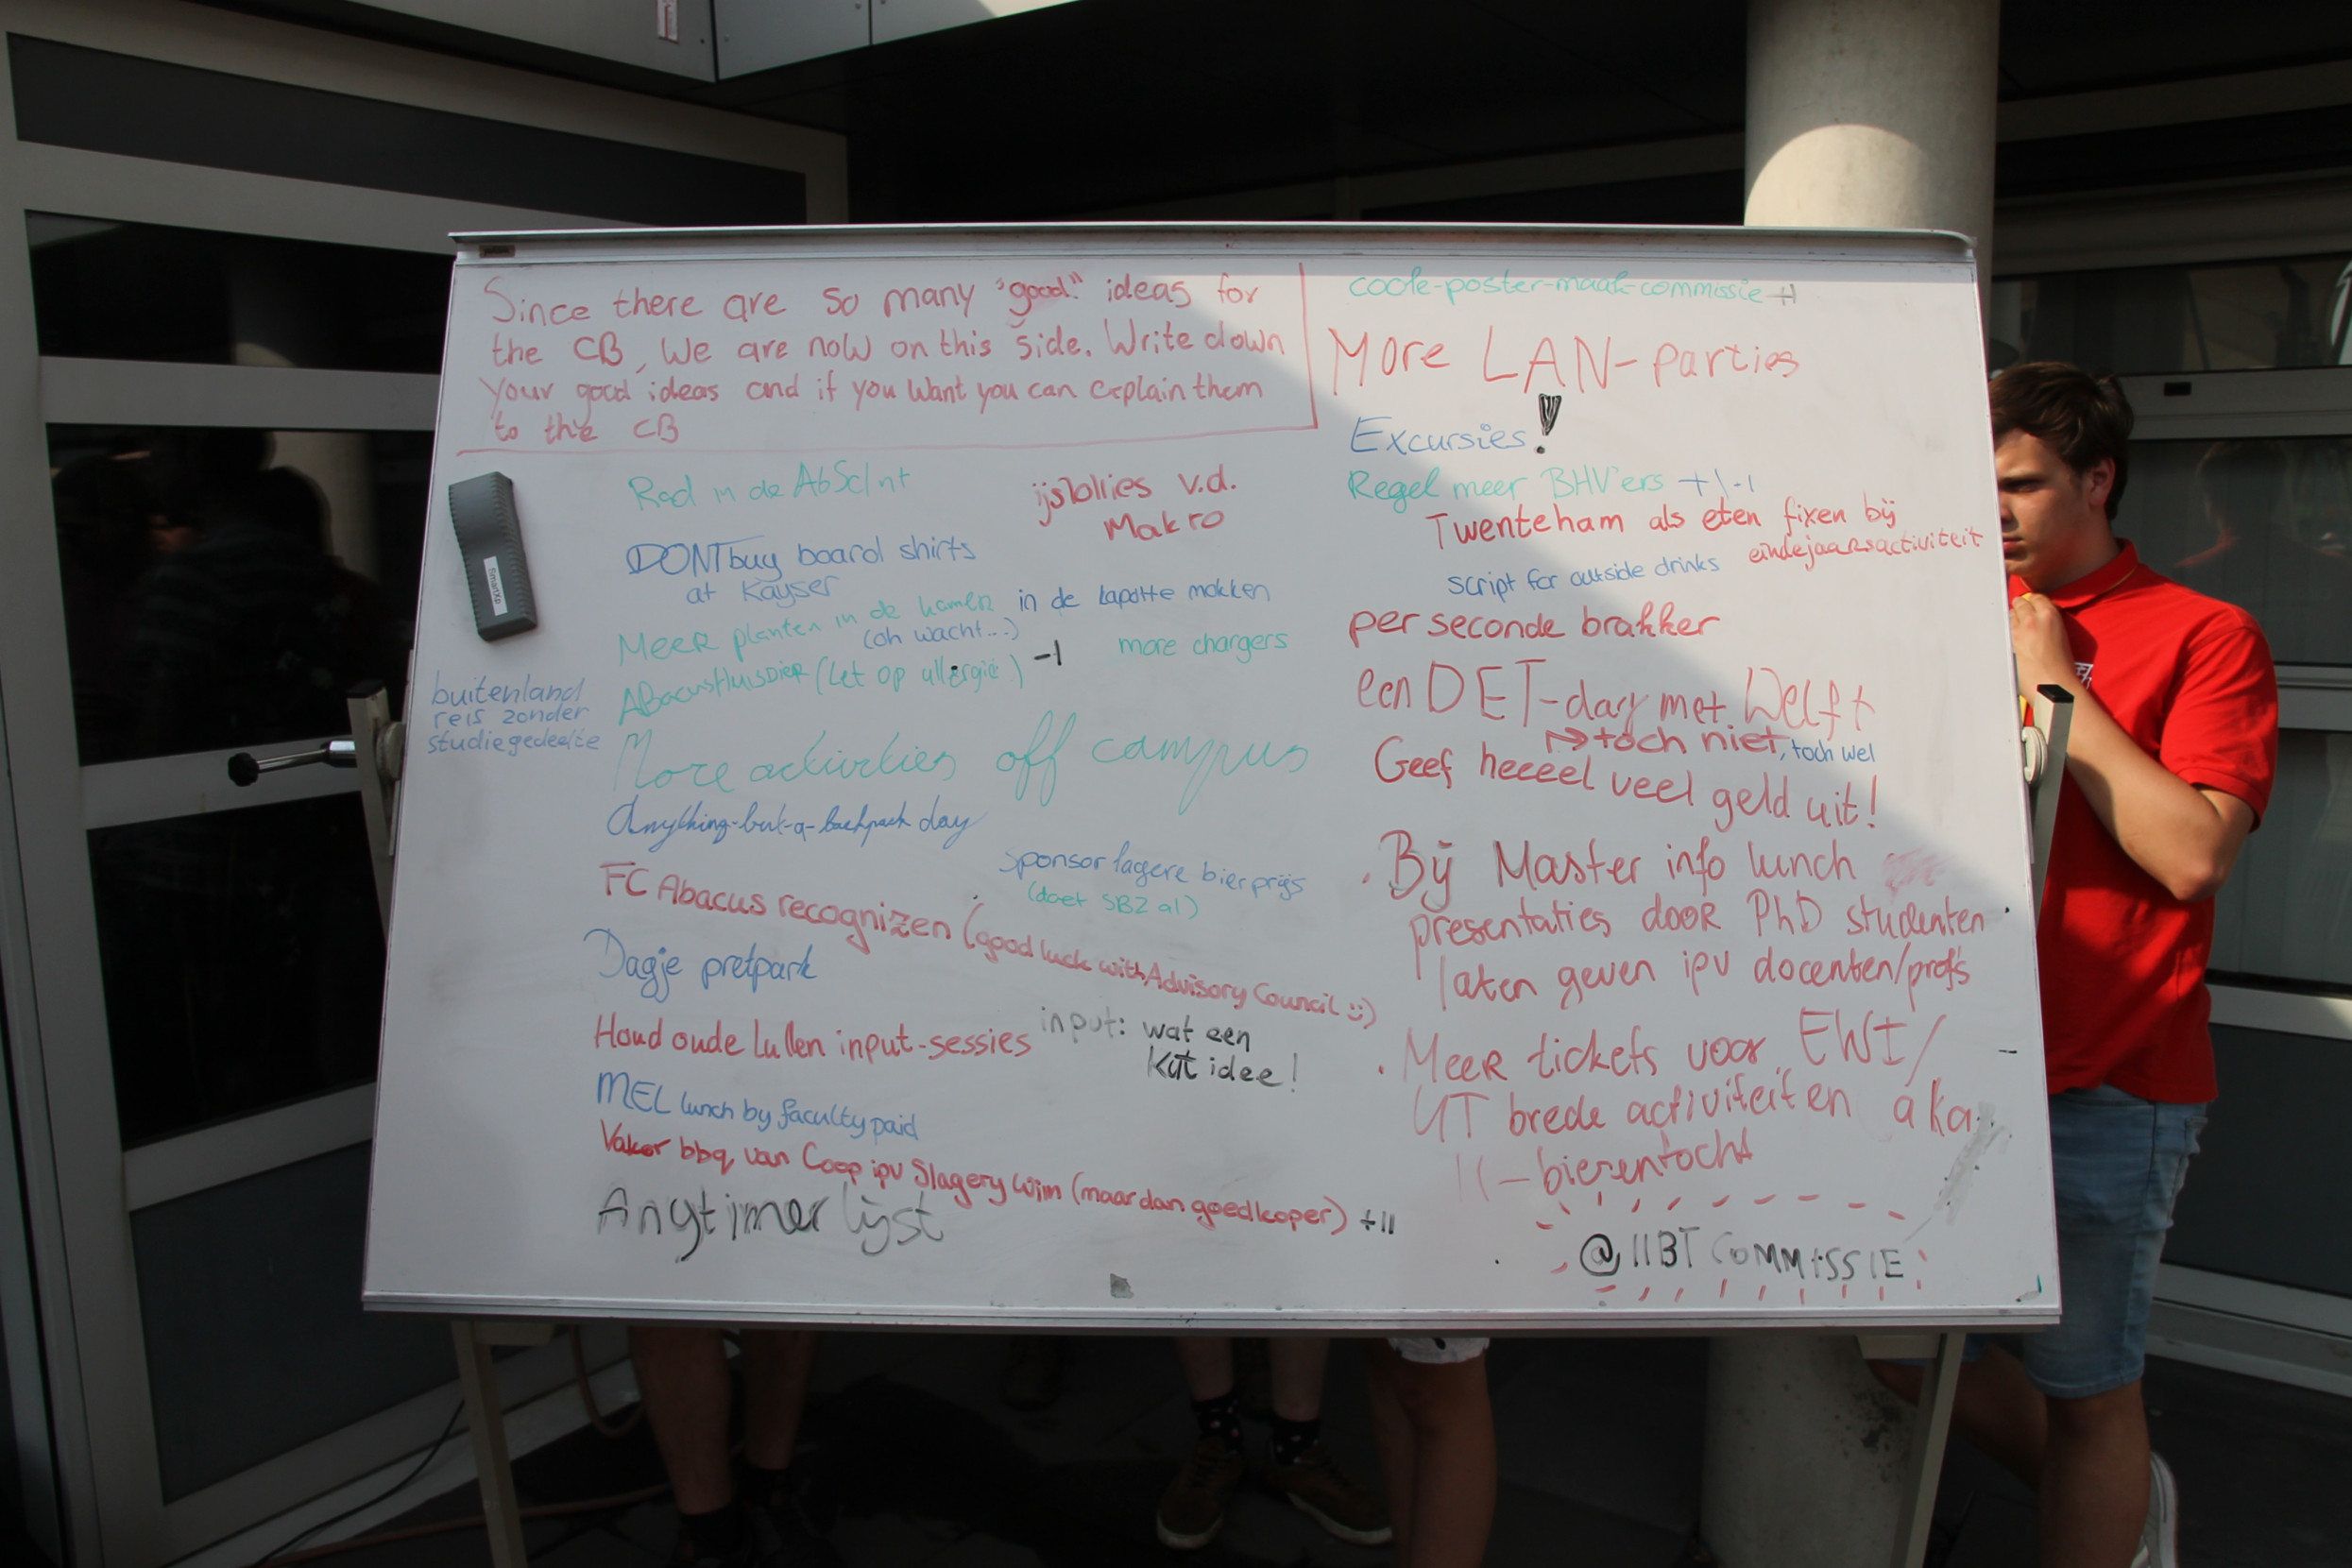 Since there are so many "good" ideas for
the CB, We are now on this side. Write down
your good ideas and if you want you can explain them
to the CB
Rad in de AbSclnt
ijslollies v.d.
Makro
DONT buy board shirts
at Kayser
Meer planten in de kamer
in de kapotte mokken
(oh wacht...)
AbacusHuisDier (Let op allergie) -1
more chargers
buitenland
reis zonder
studiegedeelte
More activities off campus
Anything-but-a-backpack day
Sponsor lagere bierprijs
(doet SBZ al)
FC Abacus recognizen (good luck with Advisory Council :))
Dagje pretpark
Houd oude lullen input-sessies
input: wat een
kut idee!
MEL lunch by faculty paid
Vaker bbq van Coop ipv Slagery Wim (maar dan goedkoper) +11
Angtimer lijst
coole-poster-maak-commissie +1
More LAN-parties
Excursies!
Regel meer BHV'ers +1 -1
Twenteham als eten fixen bij
eindejaarsactiviteit
script for outside drinks
per seconde brakker
een DET-day met Delft
toch niet, toch wel
Geef heeeel veel geld uit!
. Bij Master info lunch
presentaties door PhD studenten
laten geven ipv docenten/prof's
. Meer tickets voor EWI/
UT brede activiteiten aka
11-bierentocht
@11BT COMMISSIE
Smartxp